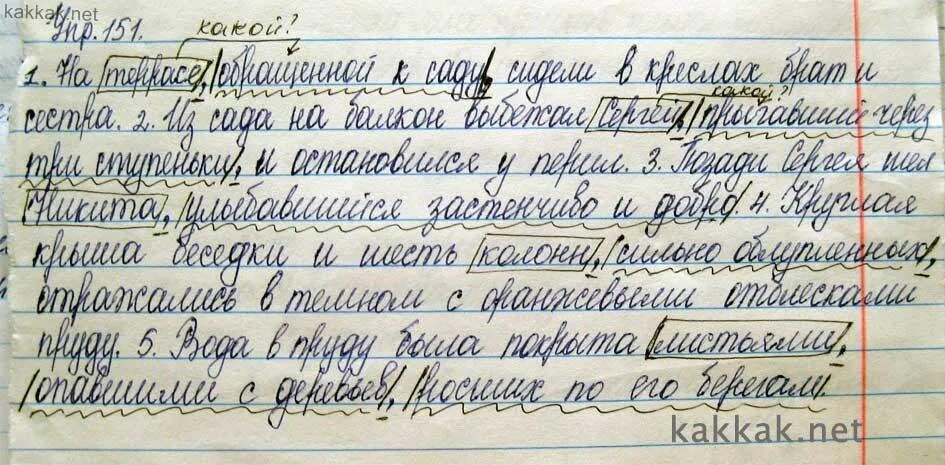 kakkak.net
Упр. 151.
какой?
1. На террасе, обращенной к саду, сидели в креслах брат и
какой?
сестра. 2. Из сада на балкон выбежал Сергей, прыгавший через
три ступеньки, и остановился у перил. 3. Позади Сергея шел
Никита, улыбавшийся застенчиво и добро. 4. Круглая
крыша беседки и шесть колонн, сильно облупленных,
отражались в темном с оранжевыми отблесками
пруду. 5. Вода в пруду была покрыта листьями,
опавшими с деревьев, росших по его берегам.
kakkak.net